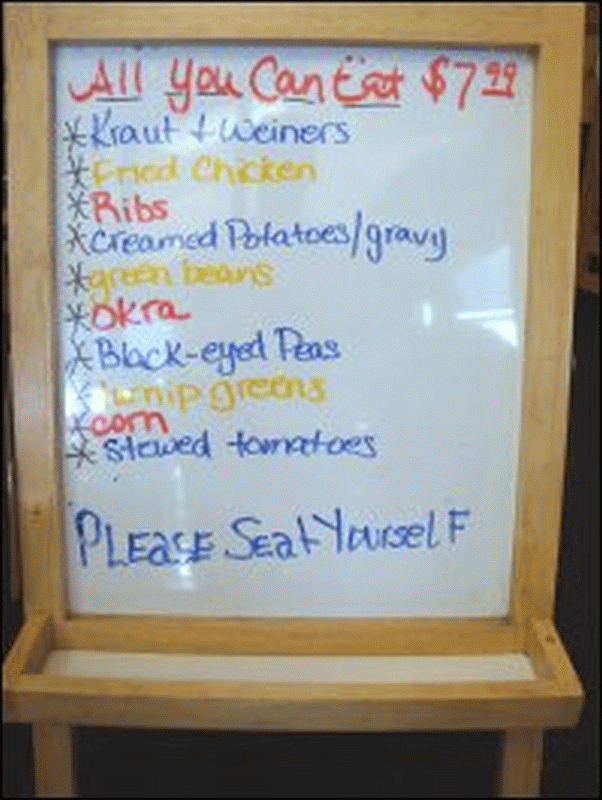 All You Can Eat $7.99
* Kraut + Weiners
* Fried Chicken
* Ribs
* Creamed Potatoes/gravy
* green beans
* Okra
* Black-eyed Peas
* turnip greens
* corn
* stewed tomatoes
PLEASE Seat Yourself